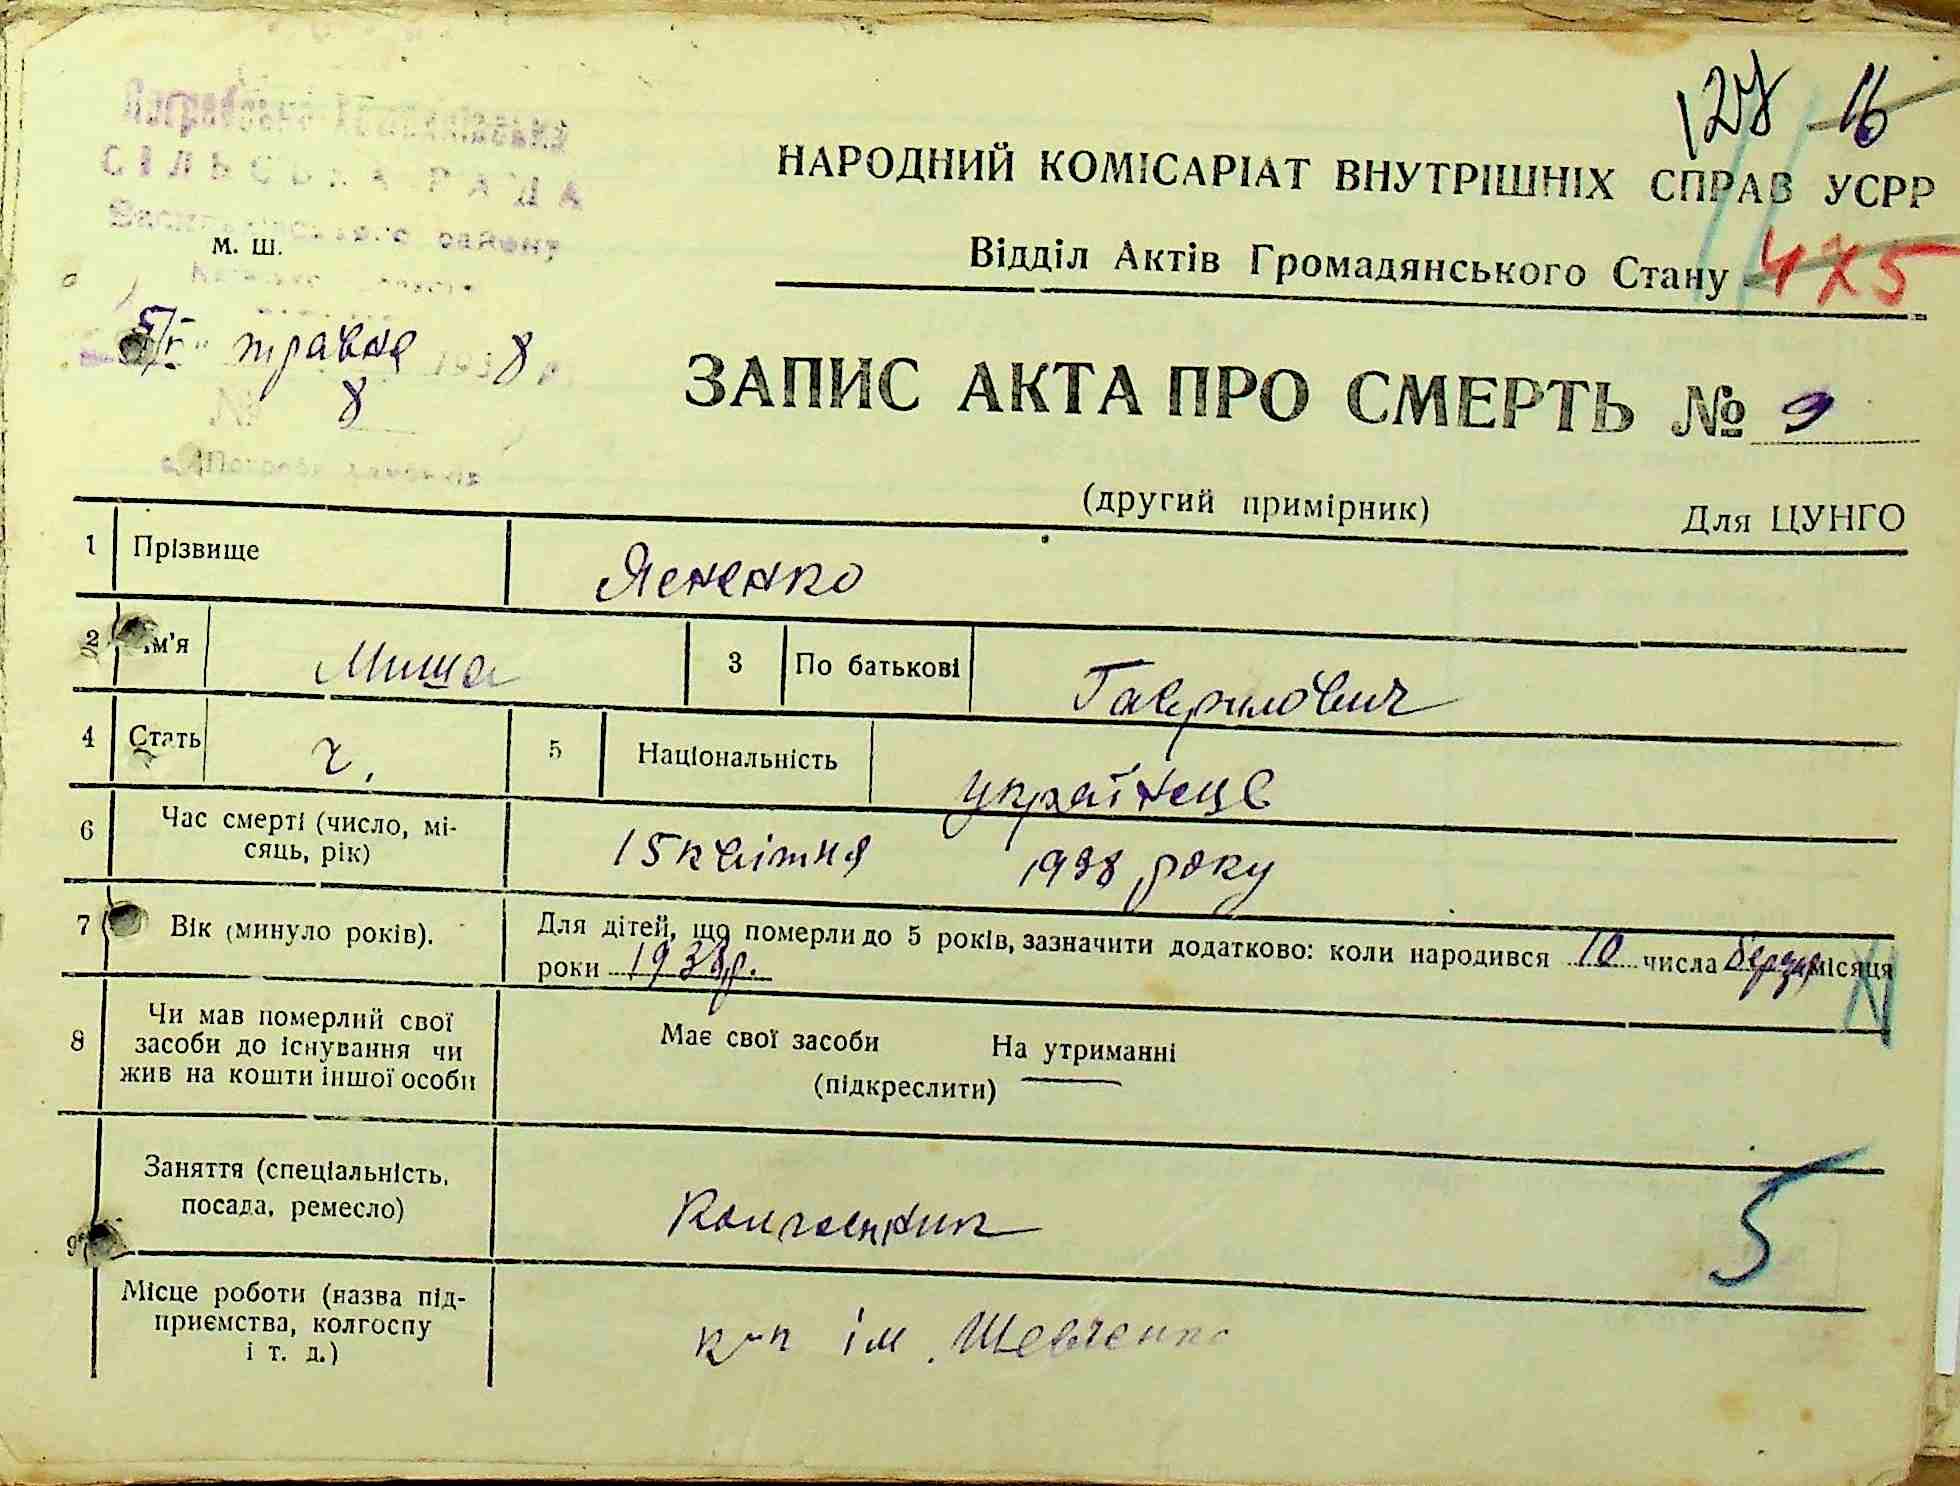 127 16
СІЛЬСЬКА РАДА
Васильківського району
м. ш.
НАРОДНИЙ КОМІСАРІАТ ВНУТРІШНІХ СПРАВ УСРР
Відділ Актів Громадянського Стану
4х5
5/V травня 1938 р.
№ 8
ЗАПИС АКТА ПРО СМЕРТЬ № 9
(другий примірник) Для ЦУНГО
1 Прізвище Ясененко
2 Ім'я Миша 3 По батькові Гаврилович
4 Стать ч. 5 Національність українець
6 Час смерті (число, мі-
сяць, рік) 15 квітня 1938 року
7 Вік (минуло років). Для дітей, що померли до 5 років, зазначити додатково: коли народився 10 числа березня місяця
роки 1938 р.
8 Чи мав померлий свої
засоби до існування чи
жив на кошти іншої особи
Має свої засоби На утриманні
(підкреслити)
9 Заняття (спеціальність,
посада, ремесло) Колгоспник
5
Місце роботи (назва під-
приємства, колгоспу
і т. д.) к-п ім. Шевченка